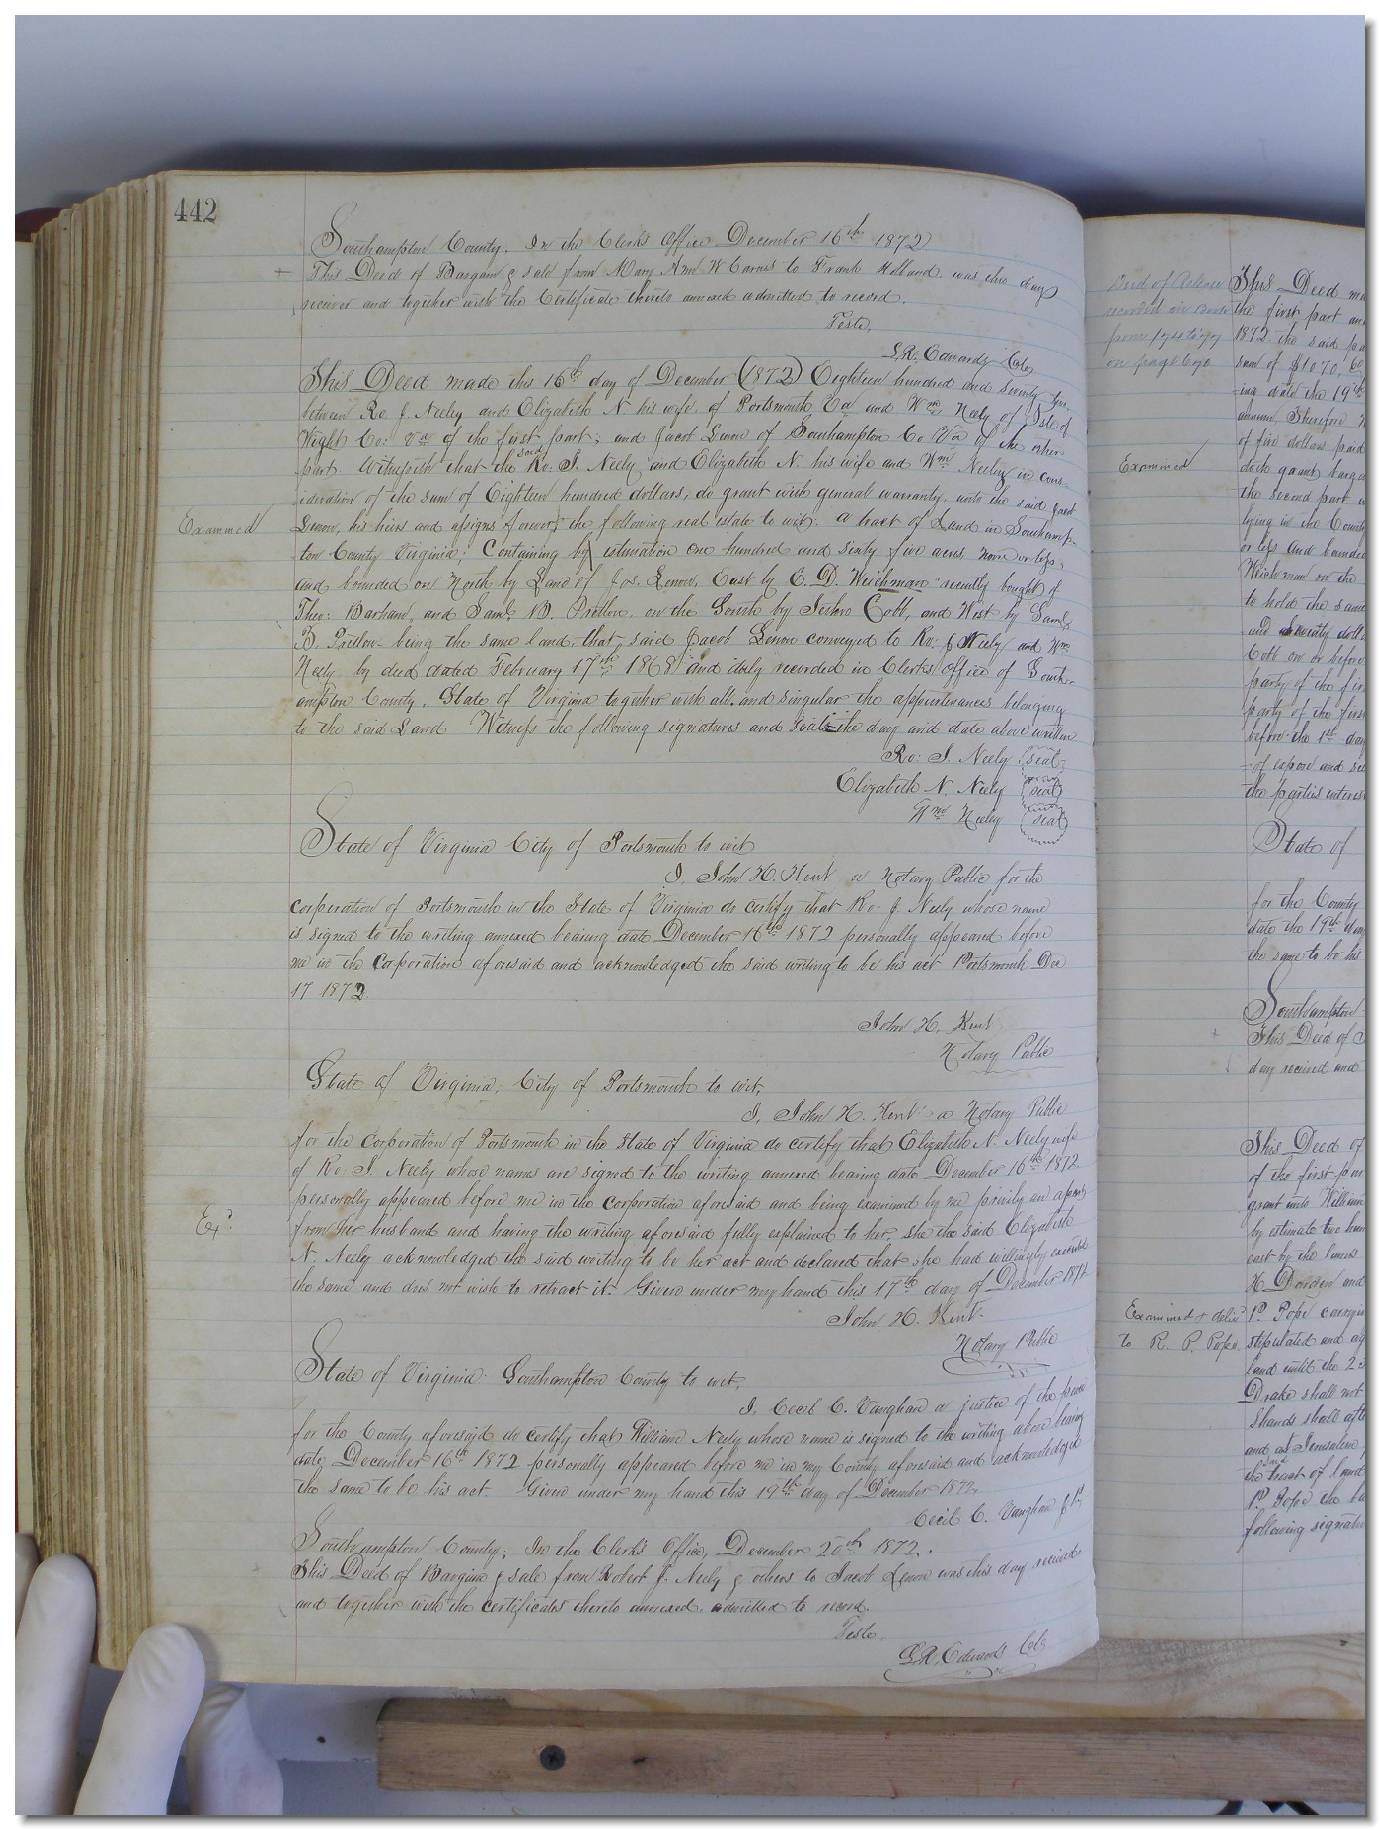 442
Southampton County. In the Clerk's Office December 16th 1872
This Deed of Bargain & sale from Mary Ann W Carns to Frank Holland was this day
receiver and together with the Certificate thereto annexed admitted to record.
Teste,
L.R. Edwards Clk
This Deed made this 16th day of December (1872) Eighteen hundred and seventy two
between Ro J. Neely and Elizabeth N his wife of Portsmouth Va and Wm Neely of Isle of
Wight Co: Va of the first part; and Jacob Lenow of Southampton Co Va of the other
part. Witnesseth that the said Ro. J. Neely and Elizabeth N. his wife and Wm Neely in cons-
Examined
ideration of the sum of Eighteen hundred dollars, do grant with general warranty unto the said Jacob
Lenow, his heirs and assigns forever, the following real estate to wit: a tract of Land in Southamp-
ton County Virginia; Containing by estimation one hundred and sixty five acres, more or less,
and bounded on North by Land of Jos. Lenow, East by E. D. Weichman recently bought of
Theo: Barham, and Saml. B. Pretlow, on the South by Jethro Cobb, and West by Saml.
B. Pretlow being the same land that said Jacob Lenow conveyed to Ro. J Neely and Wm
Neely by deed dated February 17th 1868 and duly recorded in Clerks Office of South-
ampton County, State of Virginia together with all and singular the appurtenances belonging
to the said Land Witness the following signatures and seals the day and date above written
Ro: J. Neely seal
Elizabeth N. Neely seal
Wm Neely seal
State of Virginia City of Portsmouth to wit
I, John H. Kent a Notary Public for the
corporation of Portsmouth in the State of Virginia do certify that Ro. J. Neely whose name
is signed to the writing annexed bearing date December 16th 1872 personally appeared before
me in the Corporation aforesaid and acknowledged the said writing to be his act Portsmouth Dec
17 1872.
John H. Kent
Notary Public
State of Virginia, City of Portsmouth to wit,
I, John H. Kent a Notary Public
for the Corporation of Portsmouth in the State of Virginia do certify that Elizabeth N. Neely wife
of Ro: J. Neely whose names are signed to the writing annexed bearing date December 16th 1872
personally appeared before me in the Corporation aforesaid and being examined by me privily an apart
Exd
from her husband and having the writing aforesaid fully explained to her, she the said Elizabeth
N. Neely acknowledged the said writing to be her act and declared that she had willingly executed
the same and does not wish to retract it. Given under my hand this 17th day of December 1872
John H. Kent
Notary Public
State of Virginia Southampton County to wit,
I, Cecil C. Vaughan a justice of the peace
for the County aforesaid do certify that William Neely whose name is signed to the writing above bearing
date December 16th 1872 personally appeared before me in my County aforesaid and acknowledged
the same to be his act. Given under my hand this 19th day of December 1872
Cecil C. Vaughan J.P.
Southampton County; In the Clerk's Office, December 20th 1872.
This Deed of Bargain & sale from Robert J. Neely & others to Jacob Lenow was this day received
and together with the certificates thereto annexed admitted to record.
Teste.
L.R. Edwards Clk
Deed of Release
recorded in Book
on page 690
This Deed
the first part an
1872 the said pa
sum of $1070.60
ing date the 19th
annum, Therefore
of five dollars paid
Examined
doth grant barga
the second part
lying in the County
or less and bounded
Weichman on the
to hold the same
and Seventy doll
Cobb on or before
party of the fir
party of the first
before the 1st day
of expose and
the parties interes
State of
for the County
date the 19th day
the same to be his
Southampton
This Deed of
day received and
This Deed of
of the first par
grant unto William
by estimate two hun
east by the lands
H. Darden and
Examined & deliv
to R. P. Pope
P. Pope
stipulated and ag
land until the
Drake shall not
Shands shall afte
and at Jerusalem
the tract of land
P. Pope the
following signatu